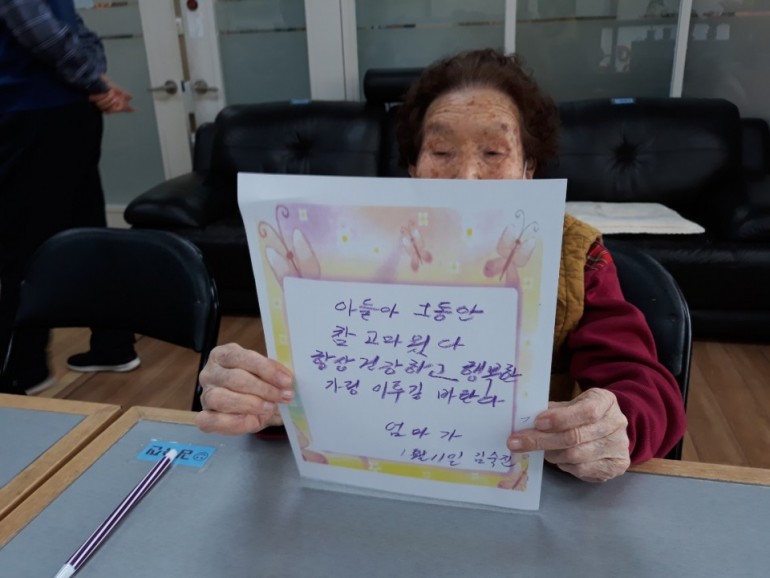 아들아 그동안
참 고마웟다
항상 건강하고 행복한
가정 이루길 바란다
엄마가
1월 11일 김숙진